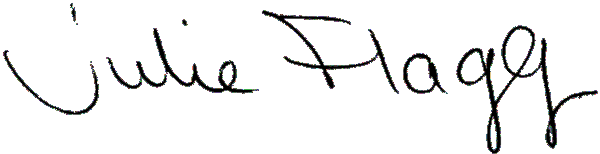 Julie Flagg